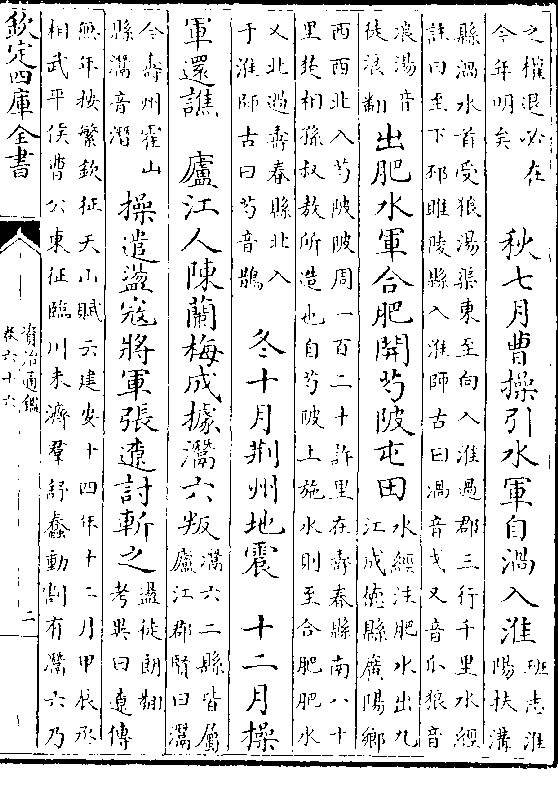 之權退必在
今年明矣
秋七月曹操引水軍自渦入淮
班志淮
陽扶溝
縣渦水首受狼湯渠東至向入淮過郡三行千里水經
註曰至下邳睢陵縣入淮師古曰渦音戈又音瓜狼音
浪湯音
徒浪翻
出肥水軍合肥開芍陂屯田
水經注肥水出九
江成德縣廣陽鄉
西西北入芍陂陂周一百二十許里在壽春縣南八十
里楚相孫叔敖所造也自芍陂上施水則至合肥肥水
又北過壽春縣北入
于淮師古曰芍音鵲
冬十月荆州地震 十二月操
軍還譙 廬江人陳蘭梅成據灊六叛
灊六二縣皆屬
廬江郡賢曰灊
今壽州霍山
縣灊音潛
操遣盪寇將軍張遼討斬之
盪徒朗翻
考異曰遼傳
無年按繁欽征天山賦云建安十四年十二月甲辰丞
相武平侯曹公東征臨川未濟羣舒蠢動割有灊六乃
欽定四庫全書
資治通鑑
卷六十六
二